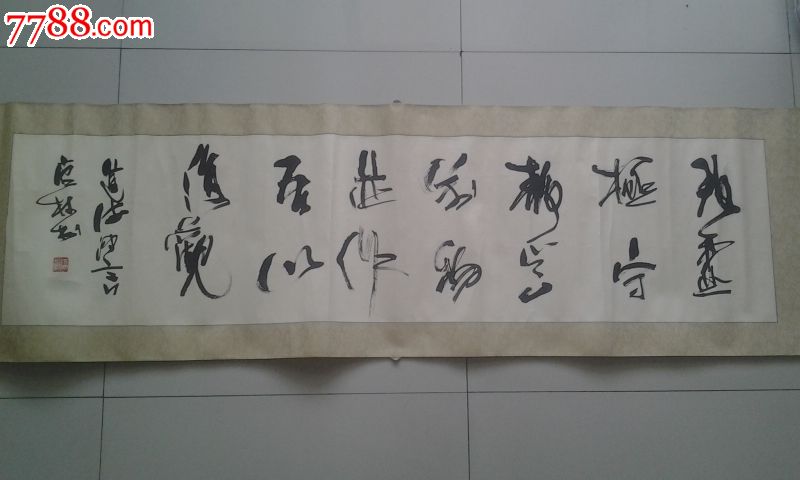 7788.com
致虛
極守
靜篤
萬物
並作
吾以
復觀
道德經言